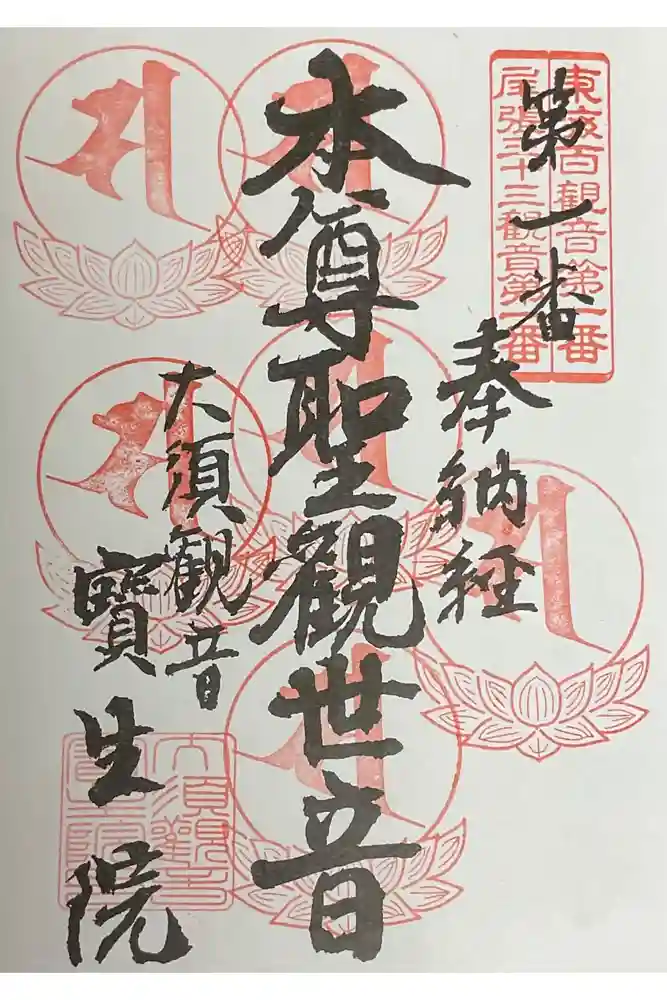 東海百観音第一番
尾張三十三観音第一番
第一番
奉納経
本尊聖観世音
大須観音
寳生院
大須観音